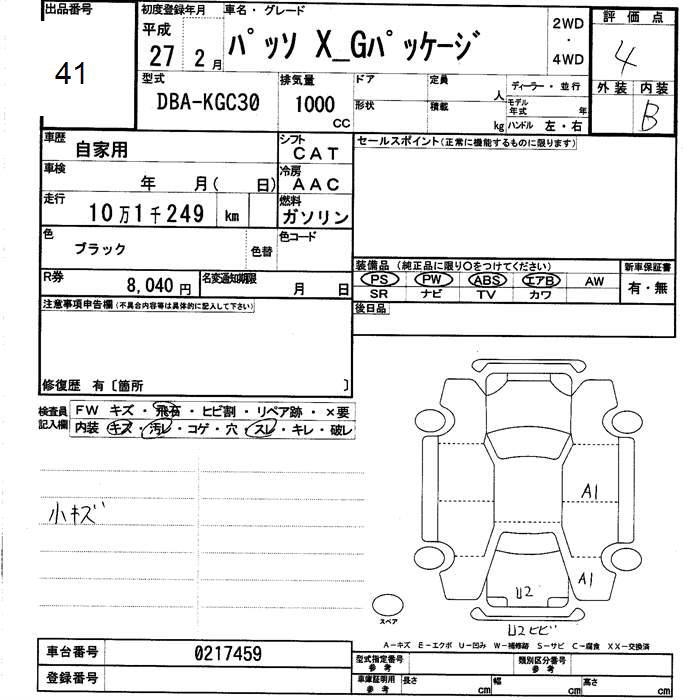 出品番号
41
初度登録年月
平成
27 2月
車名・グレード
パッソ X_Gパッケージ
2WD
・
4WD
評価点
4
外装 内装
B
型式
DBA-KGC30
排気量
1000
CC
ドア
形状
定員
人
積載
kg
ディーラー・並行
モデル年式 年
ハンドル 左・右
車歴
自家用
シフト
CAT
車検
年 月( 日)
冷房
AAC
走行
10万1千249 km
燃料
ガソリン
色
ブラック
色替
色コード
R券
8,040円
名変通知期限
月 日
セールスポイント(正常に機能するものに限ります)
装備品 (純正品に限り○をつけてください)
PS PW ABS エアB AW
SR ナビ TV カワ
新車保証書
有・無
後日品
注意事項申告欄(不具合内容等は具体的に記入して下さい)
修復歴 有〔箇所 〕
検査員
記入欄
FW キズ・飛石・ヒビ割・リペア跡・×要
内装 キズ・汚レ・コゲ・穴・スレ・キレ・破レ
小キズ
A1
A1
U2
U2ヒビ
スペア
A-キズ E-エクボ U-凹み W-補修跡 S-サビ C-腐食 XX-交換済
車台番号 0217459
登録番号
型式指定番号
参考
類別区分番号
参考
車庫証明用
参考
長さ cm 幅 cm 高さ cm